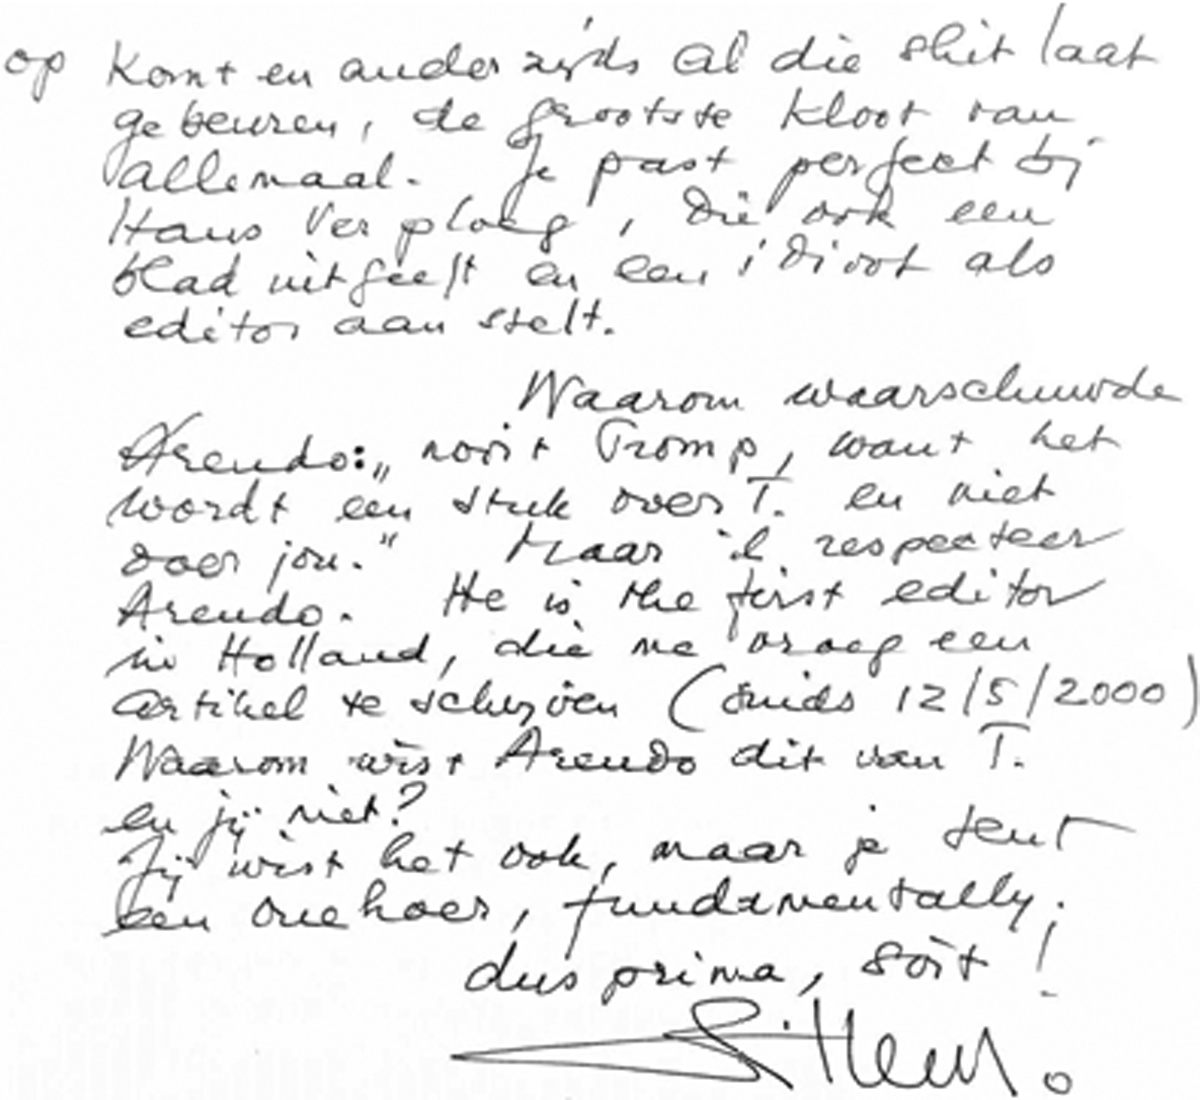 op komt en anderzijds al die shit laat
gebeuren, de grootste kloot van
allemaal. Je past perfect bij
Hans Verploeg, die ook een
blad uitgeeft en een idioot als
editor aanstelt.
Waarom waarschuwde
Arendo: „nooit Tromp, want het
wordt een stuk over T. en niet
over jou.” Maar ik respecteer
Arendo. He is the first editor
in Holland, die me vroeg een
artikel te schrijven (sinds 12/5/2000)
Waarom wist Arendo dit van T.
en jij niet?
Jij wist het ook, maar je bent
een ouehoer, fundamentally.
dus prima, soit!